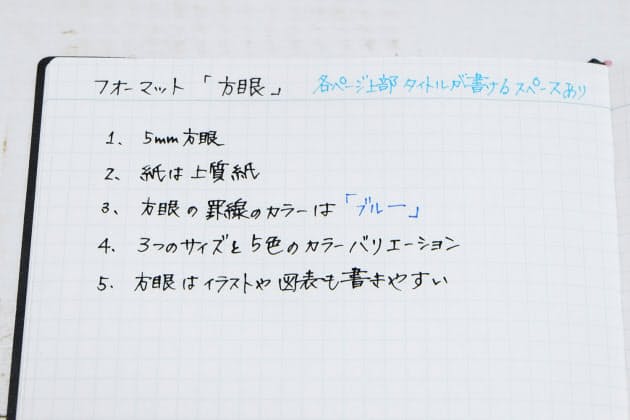 フォーマット 「方眼」 各ページ上部 タイトルが書けるスペースあり
1. 5mm方眼
2. 紙は上質紙
3. 方眼の罫線のカラーは「ブルー」
4. 3つのサイズと5色のカラーバリエーション
5. 方眼はイラストや図表も書きやすい